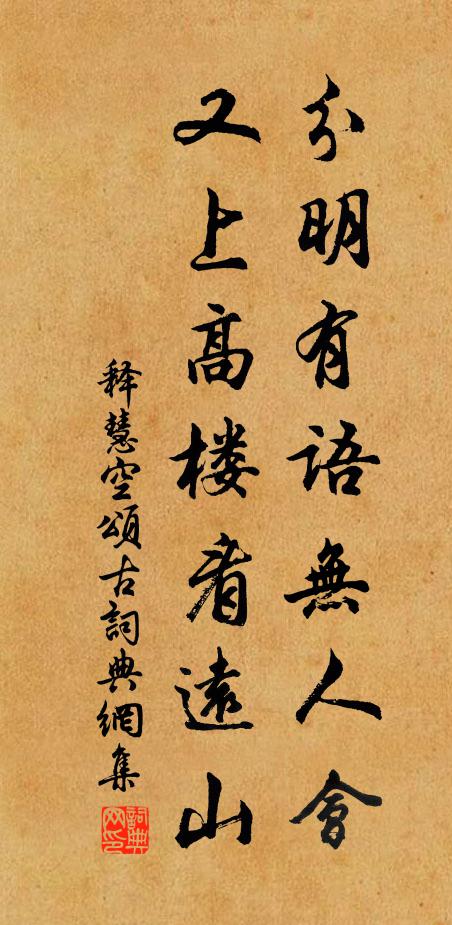 分明有语無人會
又上高楼看遠山
释慧空頌古詞典網集
詞典網印